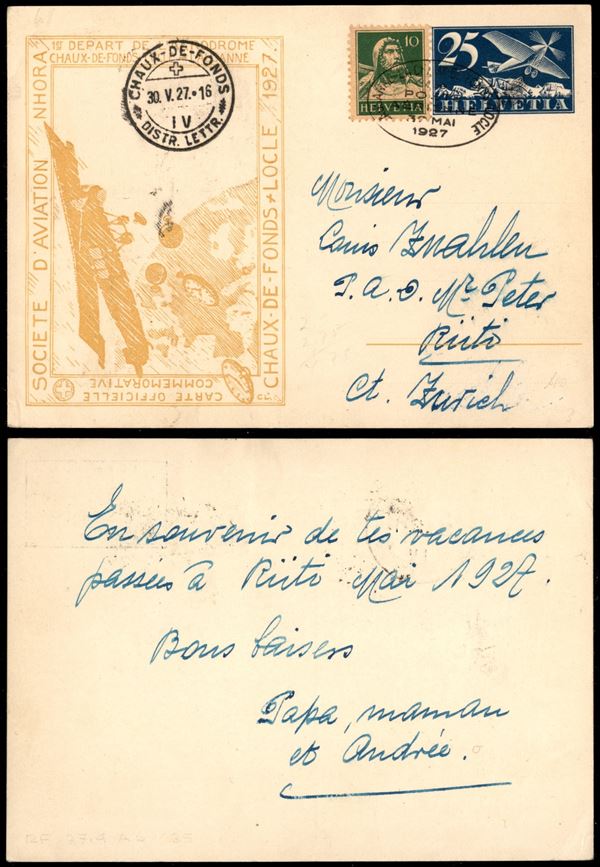 1er DEPART DE L'AERODROME
CHAUX-DE-FONDS
SOCIETE D'AVIATION NHORA
CHAUX-DE-FONDS LOCLE 1927.
CARTE OFFICIELLE
COMMEMORATIVE
CHAUX-DE-FONDS
30.V.27.-16
IV
DISTR. LETTR.
10
HELVETIA
25
HELVETIA
MAI
1927
Monsieur
Louis Zwahlen
P.a.o. Mr Peter
Rüti
Ct. Zurich
En souvenir de tes vacances
passées à Rüti Mai 1927.
Bons baisers
Papa, maman
et Andrée.